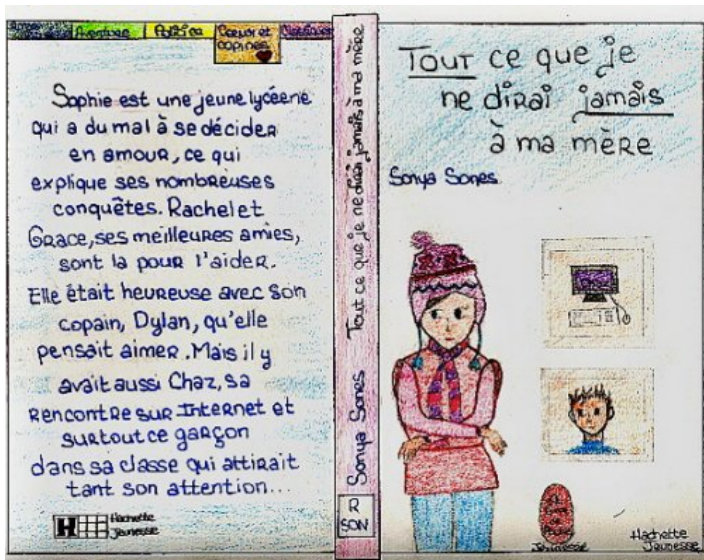 Aventure
Policier
Coeur et
copines
Sophie est une jeune lycéene
qui a du mal à se décider
en amour, ce qui
explique ses nombreuses
conquêtes. Rachel et
Grace, ses meilleures amies,
sont là pour l'aider.
Elle était heureuse avec son
copain, Dylan, qu'elle
pensait aimer. Mais il y
avait aussi Chaz, sa
rencontre sur Internet et
surtout ce garçon
dans sa classe qui attirait
tant son attention...
H Hachette
Jeunesse
Sonya Sones Tout ce que je ne dirai jamais à ma mère
R
SON
Tout ce que je
ne dirai jamais
à ma mère
Sonya Sones
Jeunesse
Hachette
Jeunesse